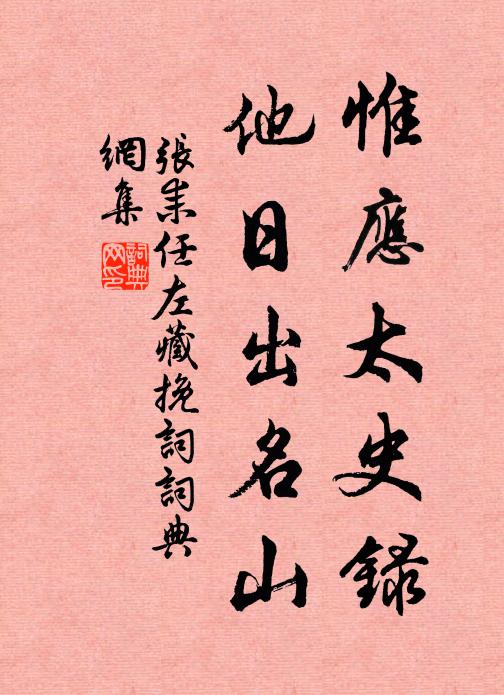 惟應太史錄
他日出名山
張耒任左藏挽詞詞典
網集
詞典
網印